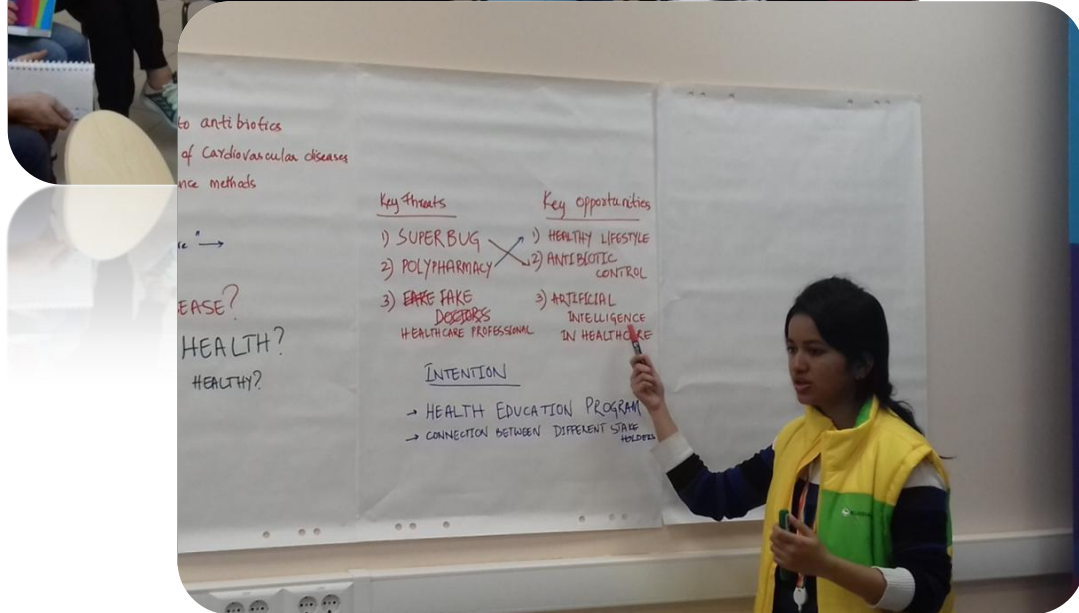 to antibiotics
of Cardiovascular diseases
nce methods
EASE?
HEALTH?
HEALTHY?
Key Threats
1) SUPERBUG
2) POLYPHARMACY
3) FAKE FAKE
DOCTORS
HEALTHCARE PROFESSIONAL
Key opportunities
1) HEALTHY LIFESTYLE
2) ANTIBIOTIC
CONTROL
3) ARTIFICIAL
INTELLIGENCE
IN HEALTHCARE
INTENTION
→ HEALTH EDUCATION PROGRAM
→ CONNECTION BETWEEN DIFFERENT STAKE
HOLDERS